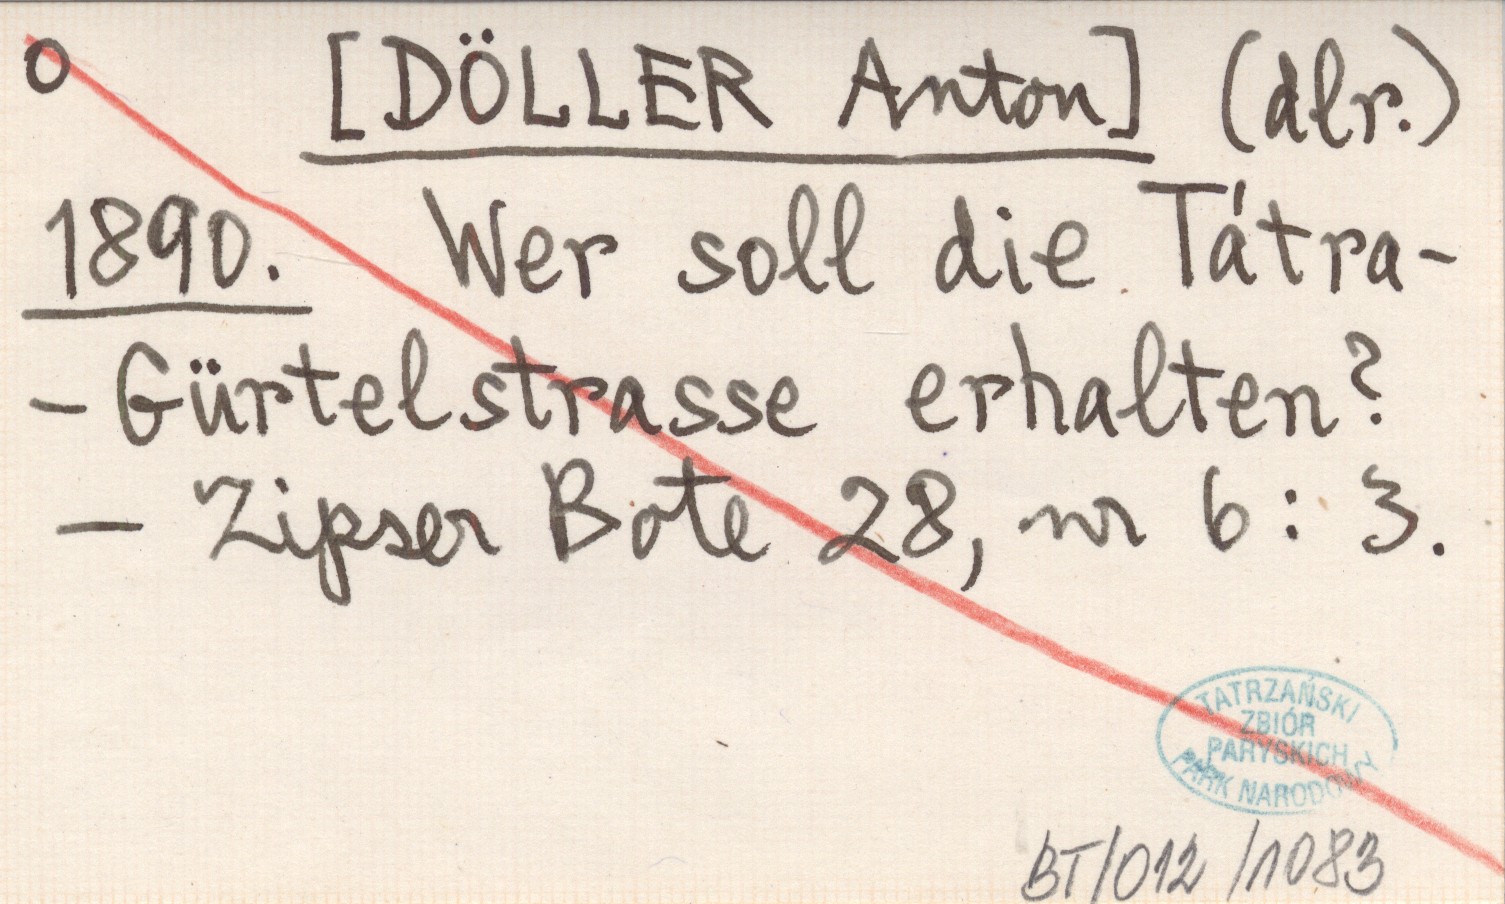 O [DÖLLER Anton] (dlr.)
1890. Wer soll die Tátra-
- Gürtelstrasse erhalten?
- Zipser Bote 28, nr 6: 3.
TATRZAŃSKI
ZBIÓR
PARYSKICH
PARK NARODOWY
BT/012/1083